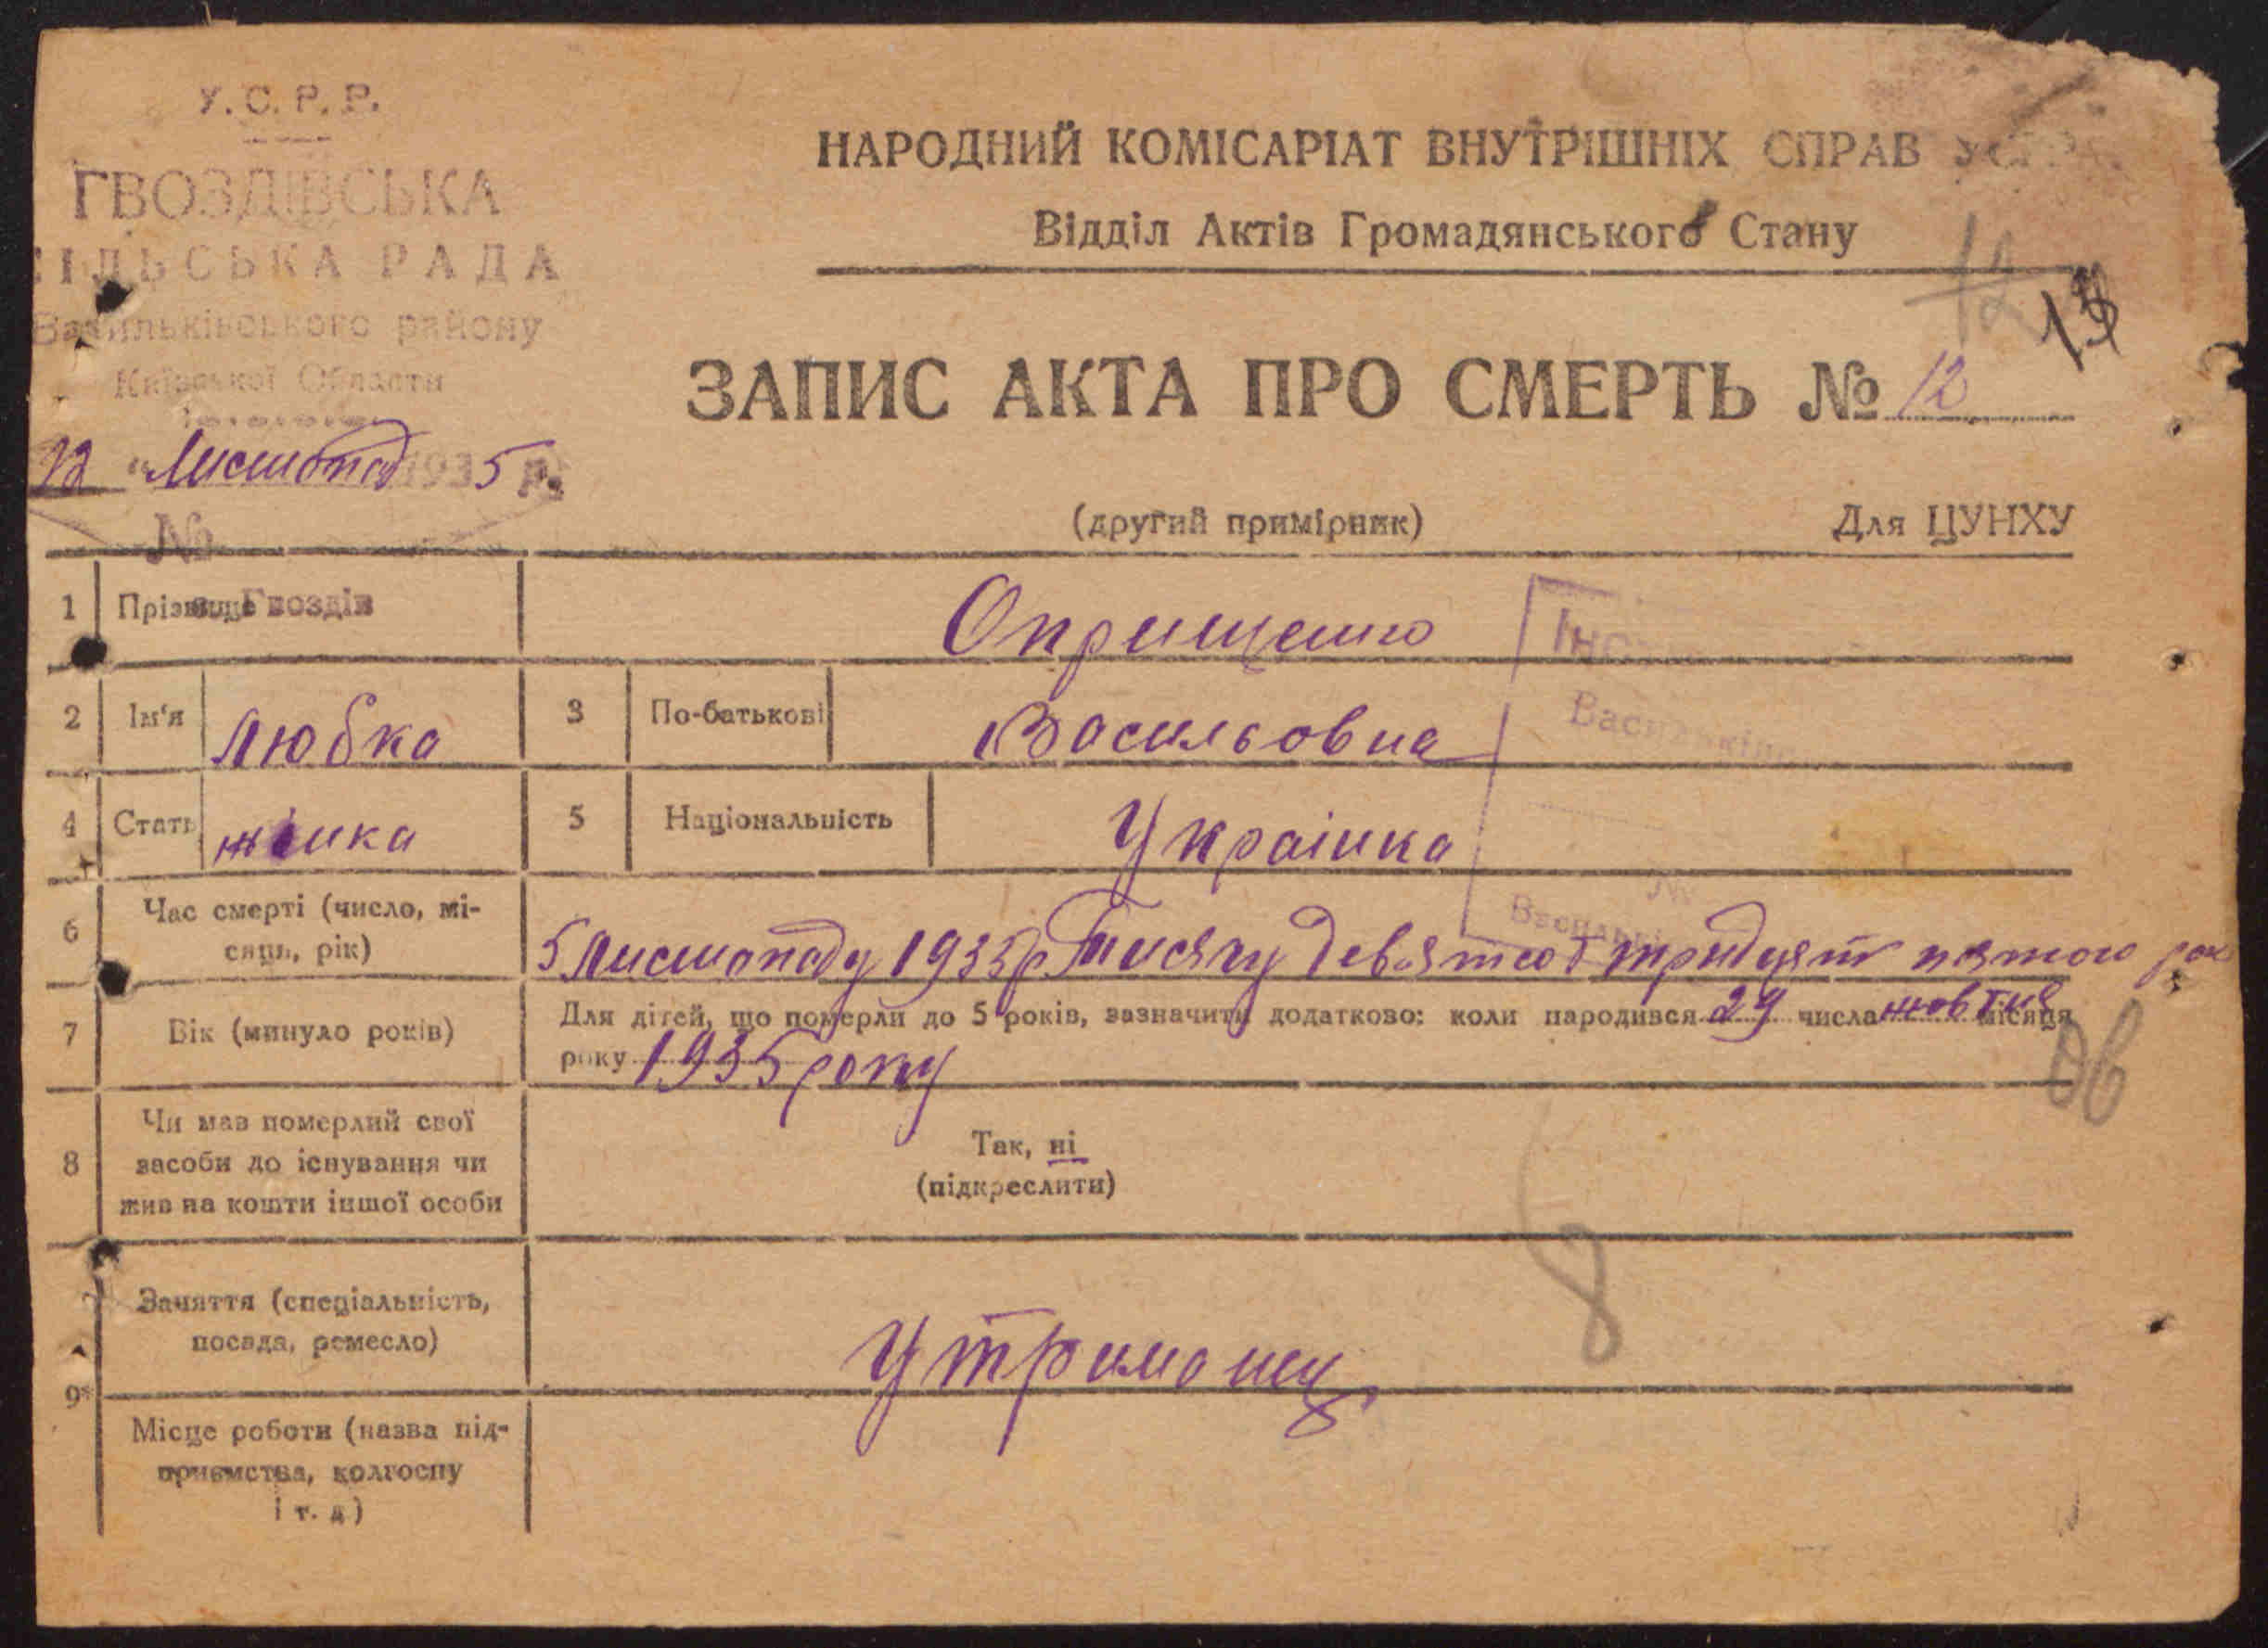 У.С.Р.Р.
ГВОЗДІВСЬКА
СІЛЬСЬКА РАДА
Васильківського району
Київської Области
Листопад 1935 р.
№
с. Гвоздів
НАРОДНИЙ КОМІСАРІАТ ВНУТРІШНІХ СПРАВ УСРР
Відділ Актів Громадянського Стану
12 13
ЗАПИС АКТА ПРО СМЕРТЬ № 12
(другий примірник) Для ЦУНХУ
1 Прізвище Оприщенко
2 Ім'я Любка 3 По-батькові Васильовна
4 Стать жінка 5 Національність Украінка
6 Час смерті (число, мі-
сяць, рік) 5 Листопаду 1935 р Тисячу девятсот тридцят пятого рок
7 Вік (минуло років) Для дітей, що померли до 5 років, зазначити додатково: коли народився 29 числа жовтня місяця
року 1935 року
8 Чи мав померлий свої
засоби до існування чи
жив на кошти іншої особи
Так, ні
(підкреслити)
8
Заняття (спеціальність,
посада, ремесло) Утриманец
9
Місце роботи (назва під-
приємства, колгоспу
і т. д)